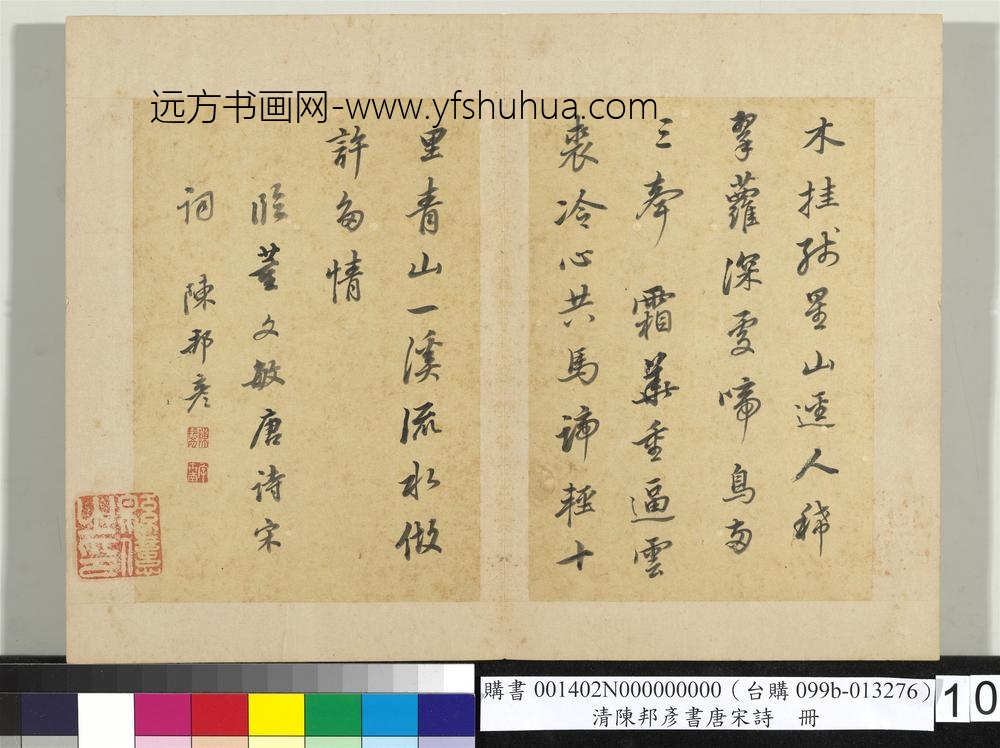 远方书画网-www.yfshuhua.com
木挂殘星山逕人稀
翠蘿深處啼鳥兩
三聲 霜華重逼雲
裘冷心共馬蹄輕十
里青山一溪流水做
許多情
臨董文敏唐詩宋
詞 陳邦彥
購書 001402N000000000（台購 099b-013276）
清陳邦彥書唐宋詩 冊
10